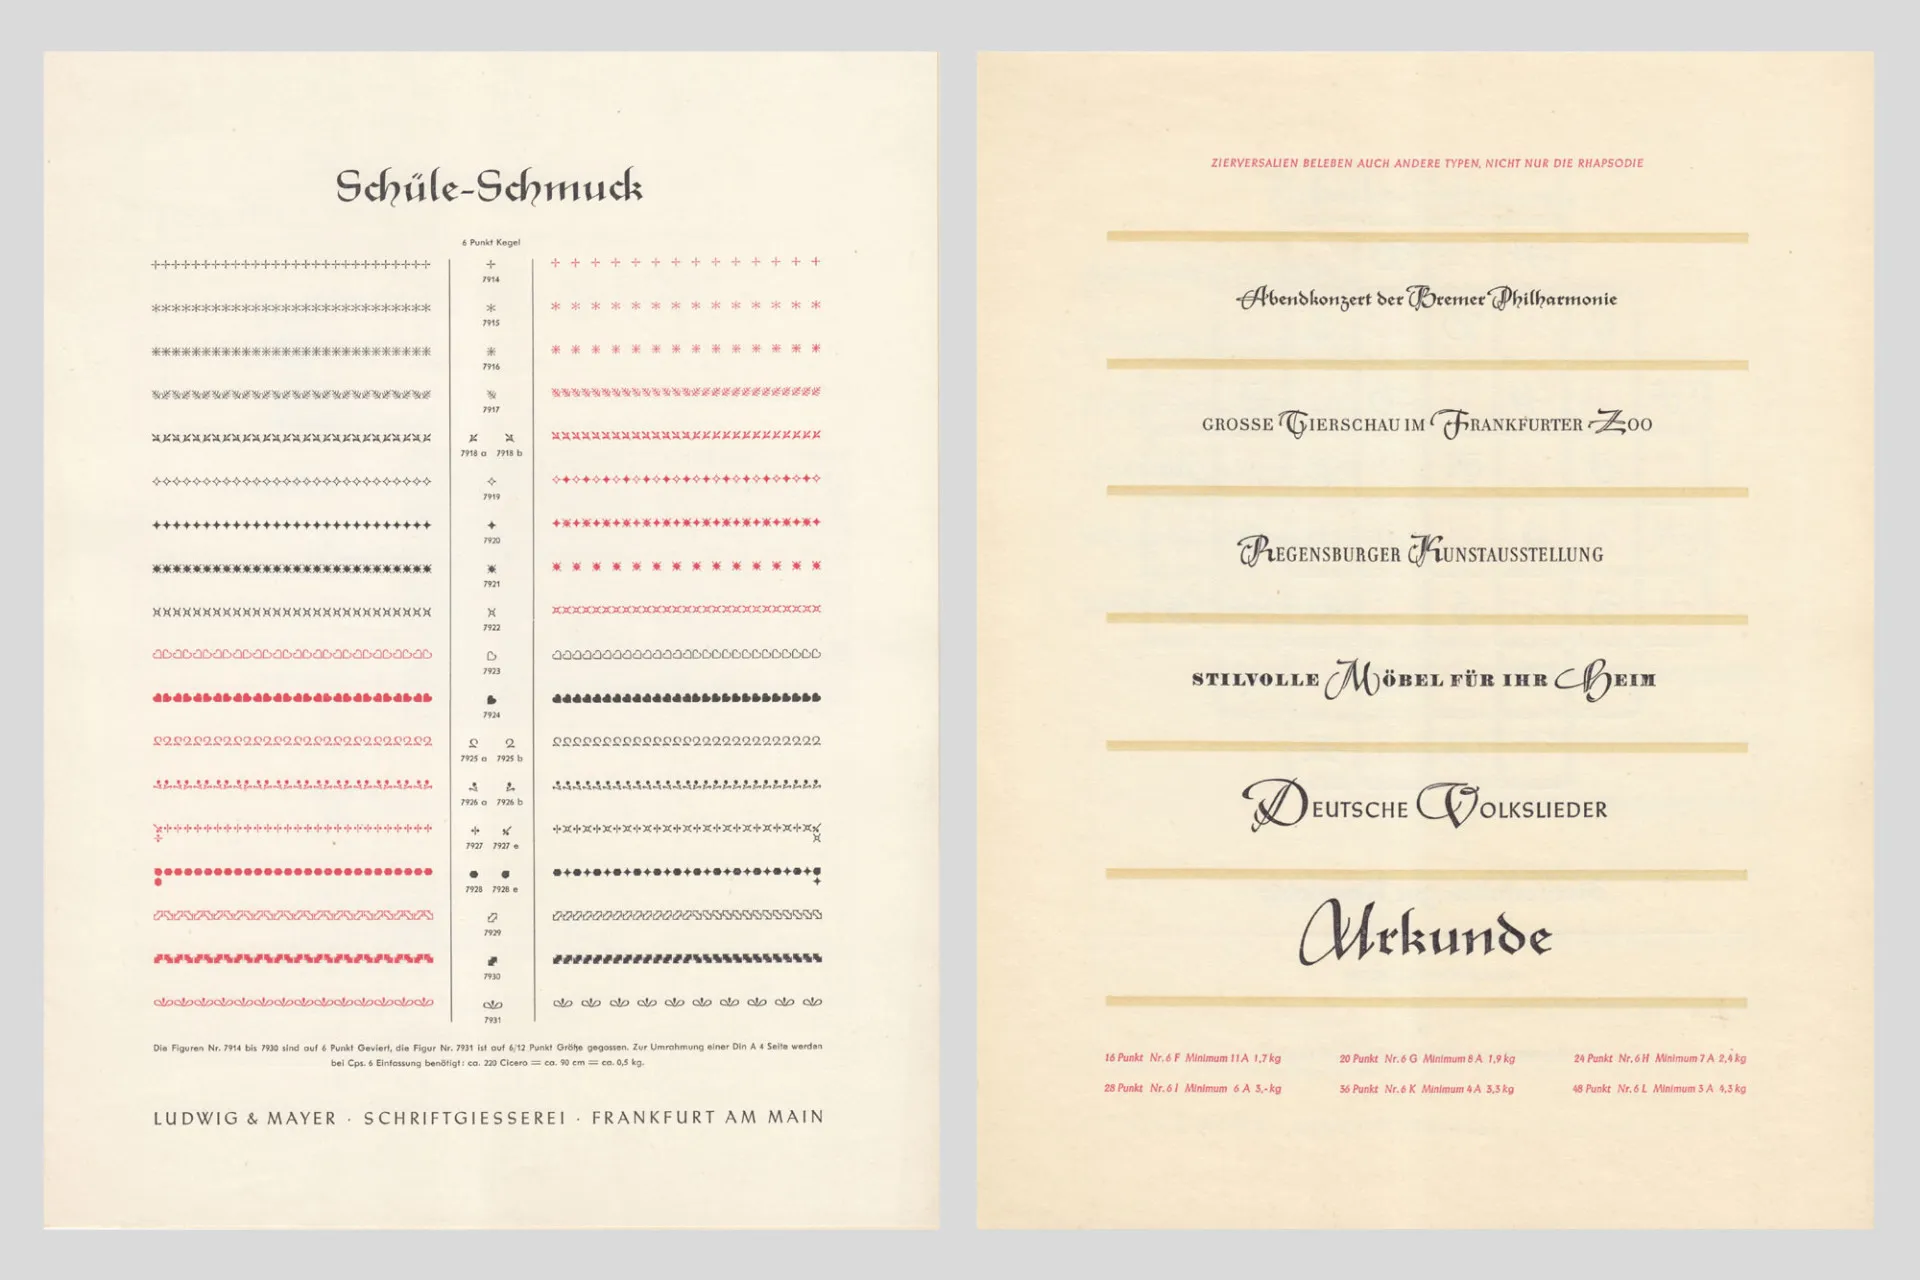 Schüle-Schmuck
6 Punkt Kegel
7914
7915
7916
7917
7918 a 7918 b
7919
7920
7921
7922
7923
7924
7925 a 7925 b
7926 a 7926 b
7927 7927 e
7928 7928 e
7929
7930
7931
Die Figuren Nr. 7914 bis 7930 sind auf 6 Punkt Geviert, die Figur Nr. 7931 ist auf 6/12 Punkt Größe gegossen. Zur Umrahmung einer Din A 4 Seite werden
bei Cps. 6 Einfassung benötigt: ca. 220 Cicero = ca. 90 cm = ca. 0,5 kg.
LUDWIG & MAYER · SCHRIFTGIESSEREI · FRANKFURT AM MAIN
ZIERVERSALIEN BELEBEN AUCH ANDERE TYPEN, NICHT NUR DIE RHAPSODIE
Abendkonzert der Bremer Philharmonie
GROSSE TIERSCHAU IM FRANKFURTER ZOO
REGENSBURGER KUNSTAUSSTELLUNG
STILVOLLE MÖBEL FÜR IHR HEIM
DEUTSCHE VOLKSLIEDER
Urkunde
16 Punkt Nr. 6 F Minimum 11 A 1,7 kg 20 Punkt Nr. 6 G Minimum 8 A 1,9 kg 24 Punkt Nr. 6 H Minimum 7 A 2,4 kg
28 Punkt Nr. 6 I Minimum 6 A 3,- kg 36 Punkt Nr. 6 K Minimum 4 A 3,3 kg 48 Punkt Nr. 6 L Minimum 3 A 4,3 kg